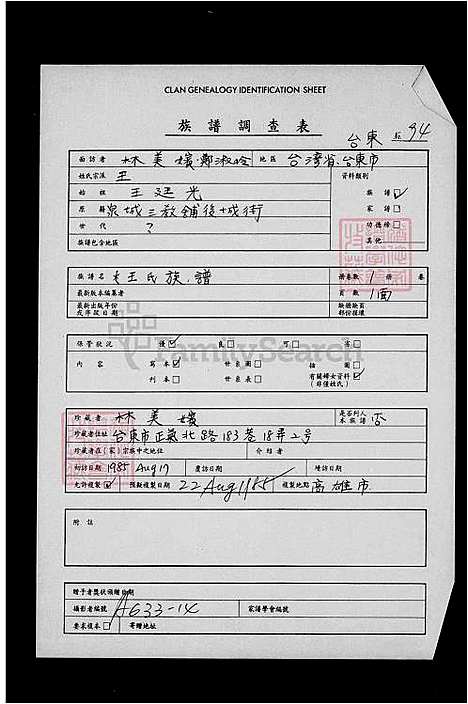 CLAN GENEALOGY IDENTIFICATION SHEET
族譜調查表
台東 94
面訪者 林美媛 鄭淑玲 地區 台灣省台東市
姓氏宗派 王 資料類別
始祖 王廷光 族譜 ✓
原籍 泉城三教舖後十成街 家譜
世代 ? 功德榜
族譜包含地區 其他
族譜名 王氏族譜 譜卷數 1 冊 卷
最新版本編纂者 頁數 1面
最新出版年份或序跋日期
保管狀況 優 ✓ 良 □ 可 □ 劣 □
內容 寫本 ✓ 世系圖 □ 插圖 □
刊本 □ 世系表 □ 有關婦女資料(非僅姓氏)
FamilySearch
珍藏者 林美媛 是否列入本族譜 否
珍藏者住址 台東市正氣北路183巷18弄2號
珍藏者在(家)宗族中之地位 介紹者
初訪日期 1985 Aug 19 覆訪日期 續訪日期
允許複製 預擬複製日期 22 Aug 1985 複製地點 高雄市
附註
贈予者獎狀頒贈日期
攝影者編號 A633-14 家譜學會編號
要求複本 □ 寄贈地址